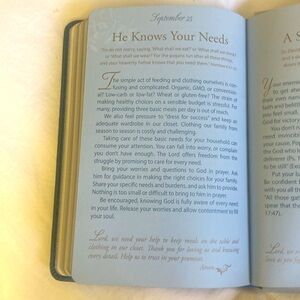 September 25
He Knows Your Needs
"So do not worry, saying, 'What shall we eat?' or 'What shall we drink?'
or 'What shall we wear?' For the pagans run after all these things,
and your heavenly Father knows that you need them."
The simple act of feeding and clothing ourselves is con-
fusing and complicated. Organic, GMO, or convention-
al? Low-carb or low-fat? Wheat or gluten-free? The strain of
making healthy choices on a sensible budget is stressful. For
many, providing three basic meals per day is out of reach.
We also feel pressure to "dress for success" and keep an
adequate wardrobe in our closet. Clothing our family from
season to season is costly and challenging.
Taking care of these basic needs for your household can
consume your attention. You can fall into worry, or complain
you don't have enough. The Lord offers freedom from the
struggle by promising to care for every need.
Bring your worries and questions to God in prayer. Ask
him for guidance in making the right choices for your family.
Share your specific needs and burdens, and ask him to provide.
Nothing is too small or difficult to bring to him in prayer.
Be encouraged. Knowing God is fully aware of every need
in your life. Release your worries and allow contentment to fill
your soul.
Lord, we need your help to keep meals on the table and
clothing in our closet. Thank you for loving us and knowing
every detail. Help us to trust in your promises.
Amen.
A S
Your